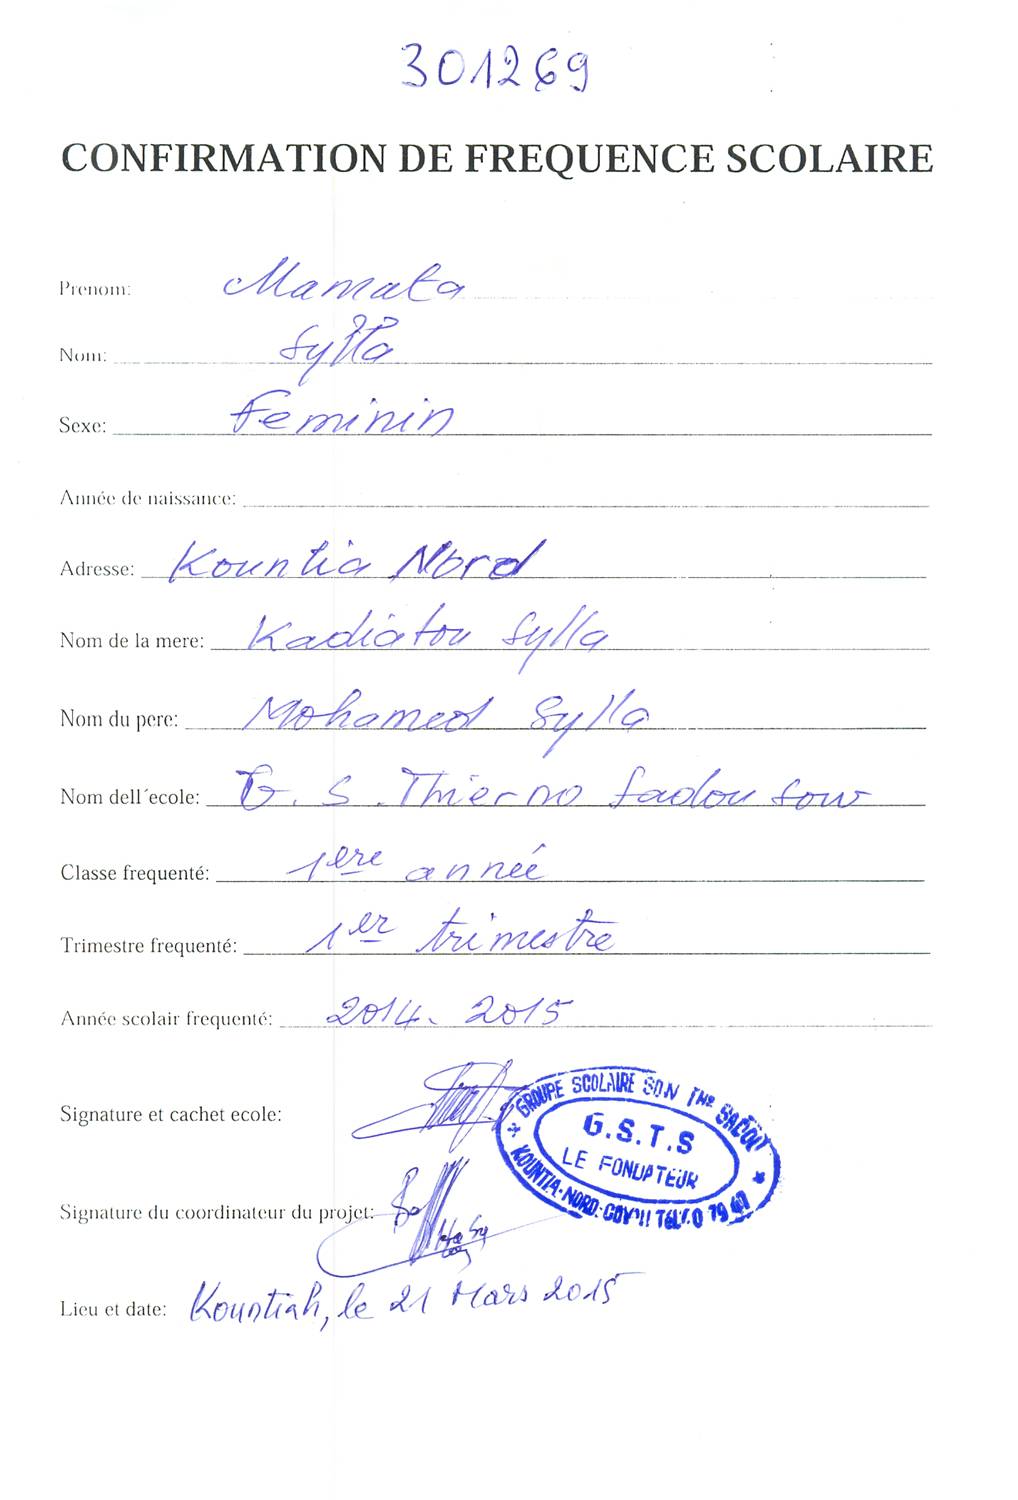 301269
CONFIRMATION DE FREQUENCE SCOLAIRE
Prenom: Mamata
Nom: Sylla
Sexe: Feminin
Année de naissance:
Adresse: Kountia Nord
Nom de la mere: Kadiatou Sylla
Nom du pere: Mohamed Sylla
Nom dell´ecole: G. S. Thierno Sadou Sow
Classe frequenté: 1ere année
Trimestre frequenté: 1er trimestre
Année scolair frequenté: 2014-2015
Signature et cachet ecole:
GROUPE SCOLAIRE
G.S.T.S
LE FONDATEUR
KOUNTIA-NORD
Signature du coordinateur du projet:
Lieu et date: Kountiah, le 21 Mars 2015